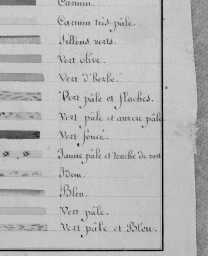 Carmin.
Carmin très pâle.
Filons verts.
Vert olive.
Vert d'herbe.
Vert pâle et flaches.
Vert pâle et aurore pâle
Vert foncé.
Jaune pâle et touche de vert
Idem.
Bleu.
Vert pâle.
Vert pâle et Bleu.